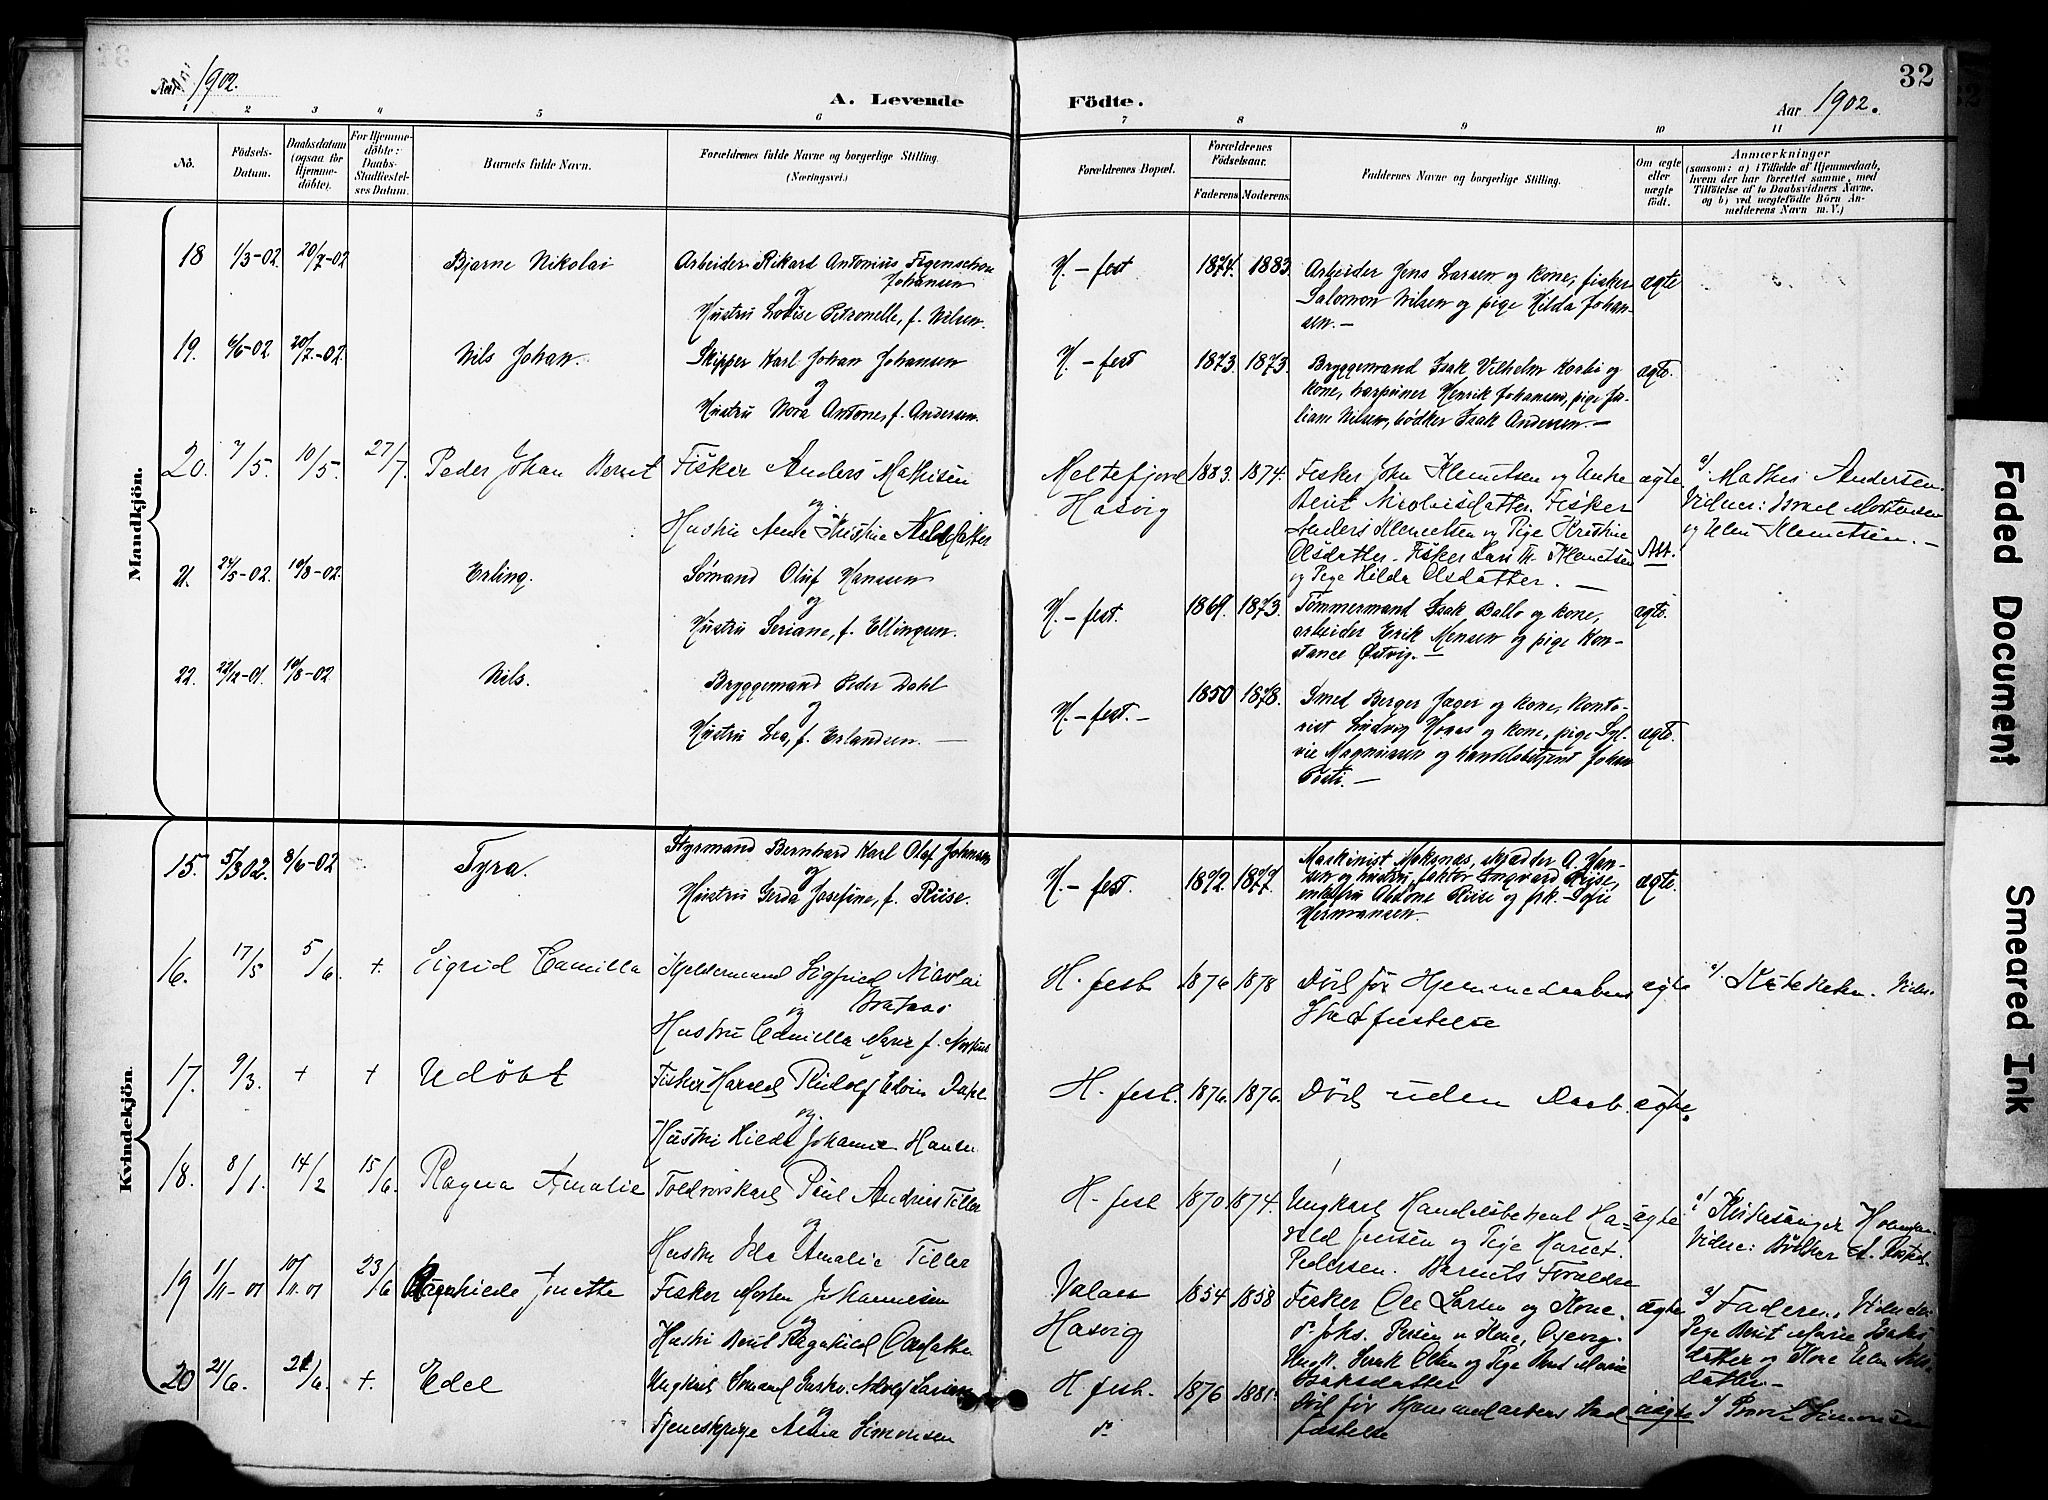 32
Aar 1902.
A. Levende Födte.
Aar 1902.
1 2 3 4 5 6 7 8 9 10 11
No.
Födsels-Datum.
Daabsdatum (ogsaa for Hjemmedöbte).
For Hjemmedöbte: Daabs-Stadfæstelses Datum.
Barnets fulde Navn.
Forældrenes fulde Navne og borgerlige Stilling.
(Næringsvei.)
Forældrenes Bopæl.
Forældrenes Födselsaar.
Faderens Moderens
Faddernes Navne og borgerlige Stilling.
Om ægte eller uægte födt.
Anmærkninger
(saasom: a) i Tilfælde af Hjemmedaab,
hvem der har forrettet samme, med
Tilföielse af to Daabsvidners Navne.
og b) ved uægtefödte Börn Anmelderens Navn m. V.)
Mandkjön.
18 1/3-02. 20/7-02 Bjarne Nikolai Arbeider Rikard Antonius Figenschou
Johansen
og
Hustru Lovise Petronelle, f. Nilsen.
H.-fest 1874. 1883. Arbeider Jens Larsen og kone, fisker
Salomon Nilsen og pige Hilda Johan-
sen.-
ægte
19. 6/6-02. 20/7-02. Nils Johan. Skipper Karl Johan Johansen
og
Hustru Nora Antone, f. Andersen.
H.-fest 1873. 1873. Bryggemand Isak Vilhelm Karbø og
kone, harpuner Henrik Johansen, pige Ju-
liane Nilsen, bødker Isak Andersen.-
ægte.
20. 7/5. 10/5. 27/7. Peder Johan Bernt Fisker Anders Mathisen
og
Hustru Anne Kristine Nilsdatter
Meltefjord
Hasvig
1883. 1874. Fisker John Klemetsen og Enke
Berit Nicolaisdatter. Fisker
Anders Klemetsen og Pige Kristine
Olsdatter. Fisker Lars Th. Klemetsen
og Pige Hilda Olsdatter.-
ægte
Att.
a/. Mathis Andersen.
Vidner: Israel Mortensen
og Elen Klemetsen.-
21. 24/5-02. 10/8-02. Erling. Sømand Oluf Hansen
og
Hustru Seriane, f. Ellingsen.
H.-fest. 1869. 1873. Tømmermand Isak Ballo og kone,
arbeider Erik Mensen og pige Kon-
stance Østvig.-
ægte.
22. 22/12-01. 10/8-02 Nils. Bryggemand Peder Dahl
og
Hustru Lea, f. Erlandsen.-
H.-fest.- 1850 1878. Smed Berger Jager og kone, konto-
rist Ludvig Hoaas og kone, pige Syl-
vie Magnussen og handelsbetjent Johan
Posti.-
ægte.
Kvindekjön
15. 5/302. 8/6-02 Tyra. Styrmand Bernhard Karl Olaf Johansen
og
Hustru Gerda Josefine, f. Riise.
H.-fest. 1872. 1877. Maskinist Moksnæs, skrædder A. Han-
sen og hustru, faktor Ingvard Riise,
enkefru Antone Riise og frk. Sofie
Hermansen.
ægte.
16. 17/5 5/6. +. Sigrid Camilla Kjeldermand Sigfried Nicolai
og
Hustru Camilla Marie f.
H. fest 1876 1878 Død før Hjemmedaabens
Stadfæstelse
ægte
17. 9/3. + + Udøbt Fisker Harald Rudolf Edvin Dahl
og
Hustru Hilda Johanne Hansen
H. fest. 1876. 1876. Død uden Daab. ægte.
18. 8/1. 14/2 15/6. Ragna Amalie Toldrorskarl Paul Andreas Tiller
og
Hustru Ida Amalie Tiller
H. fest 1870 1874. Ungkarl Handelsbetjent Ha-
rald Jensen og Pige Hariet
Pedersen. Barnets Forældre
ægte
a/ Kirkesanger
Vidne: Bødker
19 1/11-01 10/11.01 23/6 Ragnhilde Jonette Fisker Morten Johannesen
og
Hustru Berit Ragnhild Olsdatter
Hasvig
1854 1858 Fisker Ole Larsen og Kone.
do Johs. Persen og Kone,
Ungk. Isak Olsen og Pige Berit Marie
Isaksdatter
ægte
a/ Faderen, Vidner:
Pige Berit Marie Isaks-
datter og Kone Elen
datter.-
20 21/6. 21/6. +. Edel Ungkarl Sømand Adolf Larsen
og
Tjenestepige Anna Simonsen
H. fest. 1876 1881. Død før Hjemmedaabens Stad-
do fæstelse
uægte
a/ Simonsen
Faded Document
Smeared Ink